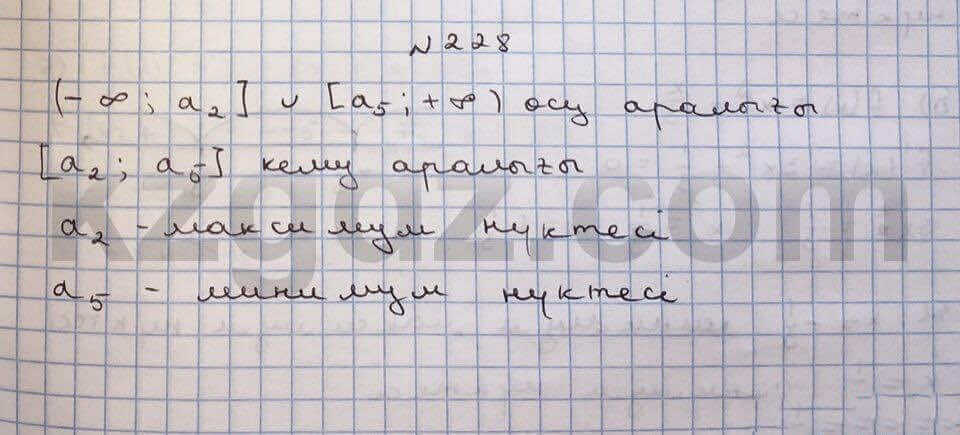 N 228
(- ∞; a₂] ∪ [a₅; + ∞) өсу аралығы
[a₂; a₅] кему аралығы
a₂ - максимум нүктесі
a₅ - минимум нүктесі
kzgaz.com